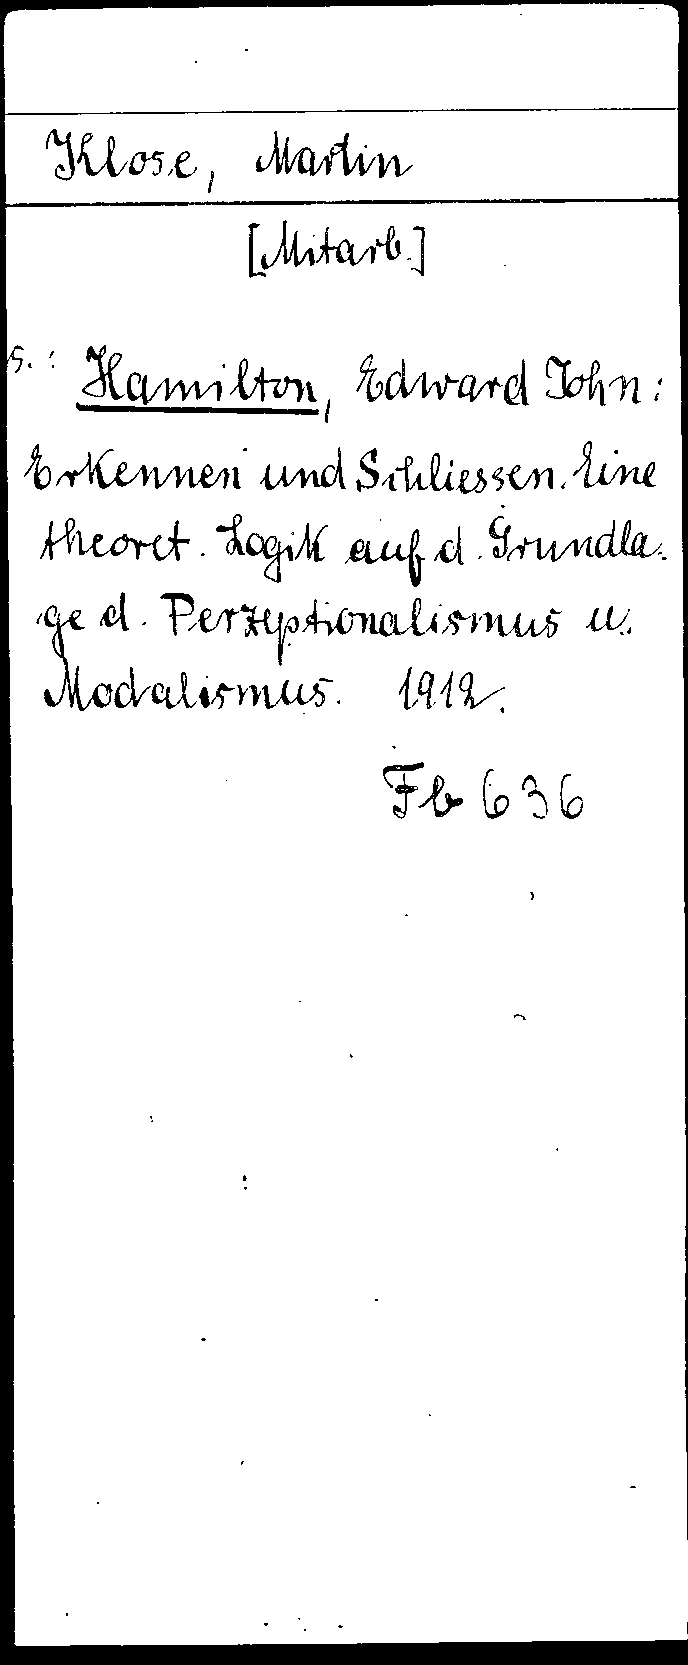 Klose, Martin
[Mitarb.]
s.: Hamilton, Edward John:
Erkennen und Schliessen. Eine
theoret. Logik auf d. Grundla-
ge d. Perzeptionalismus u.
Modalismus. 1912.
Fb 636